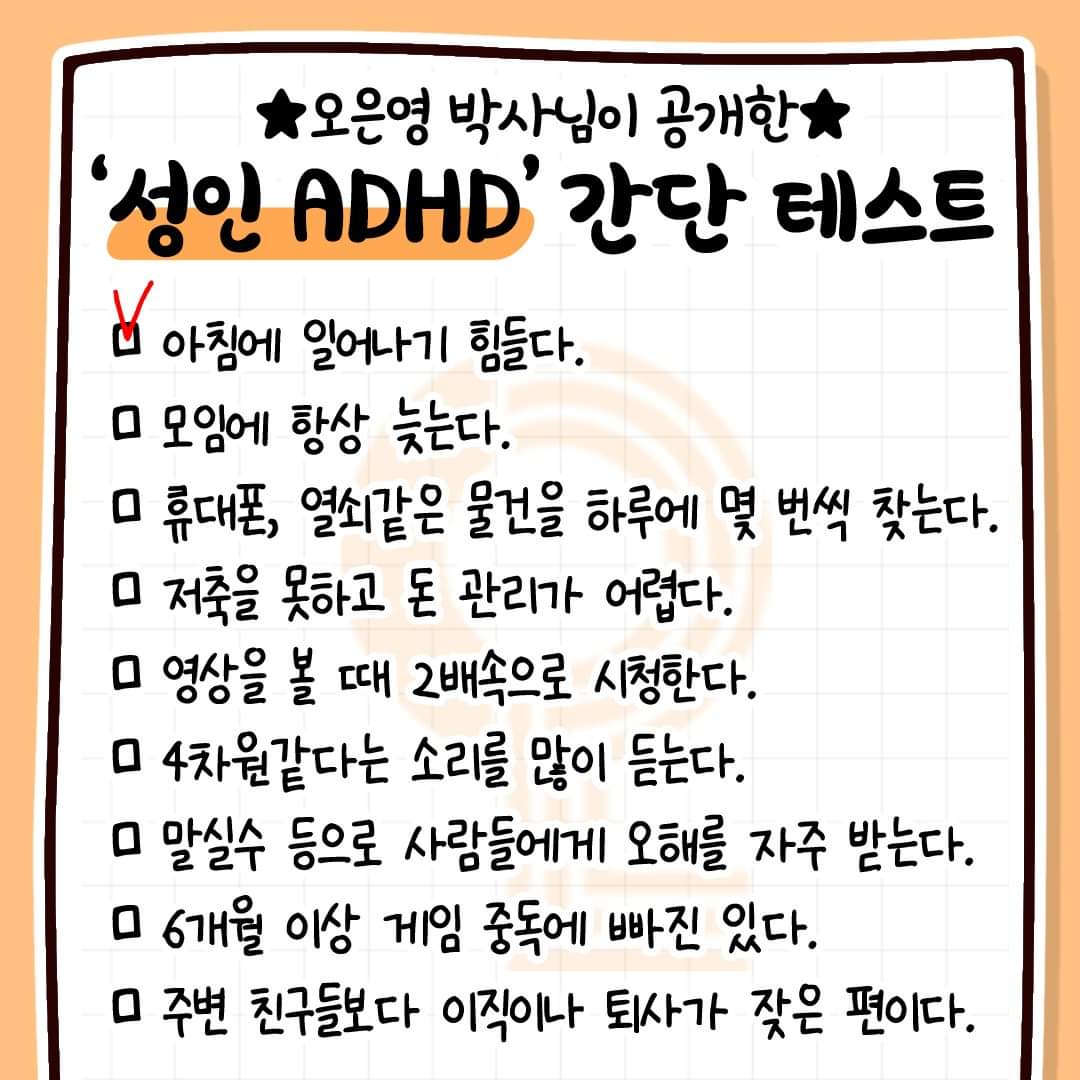 ★오은영 박사님이 공개한★
‘성인 ADHD’ 간단 테스트
아침에 일어나기 힘들다.
모임에 항상 늦는다.
휴대폰, 열쇠같은 물건을 하루에 몇 번씩 찾는다.
저축을 못하고 돈 관리가 어렵다.
영상을 볼 때 2배속으로 시청한다.
4차원같다는 소리를 많이 듣는다.
말실수 등으로 사람들에게 오해를 자주 받는다.
6개월 이상 게임 중독에 빠진 있다.
주변 친구들보다 이직이나 퇴사가 잦은 편이다.